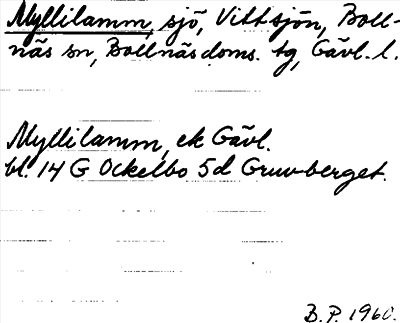 Myllilamm, sjö, Vittsjön, Boll-
näs sn, Bollnäs doms. tg, Gävl. l.
Myllilamm, ek Gävl.
bl. 14 G Ockelbo 5d Gruvberget.
B.P. 1960.